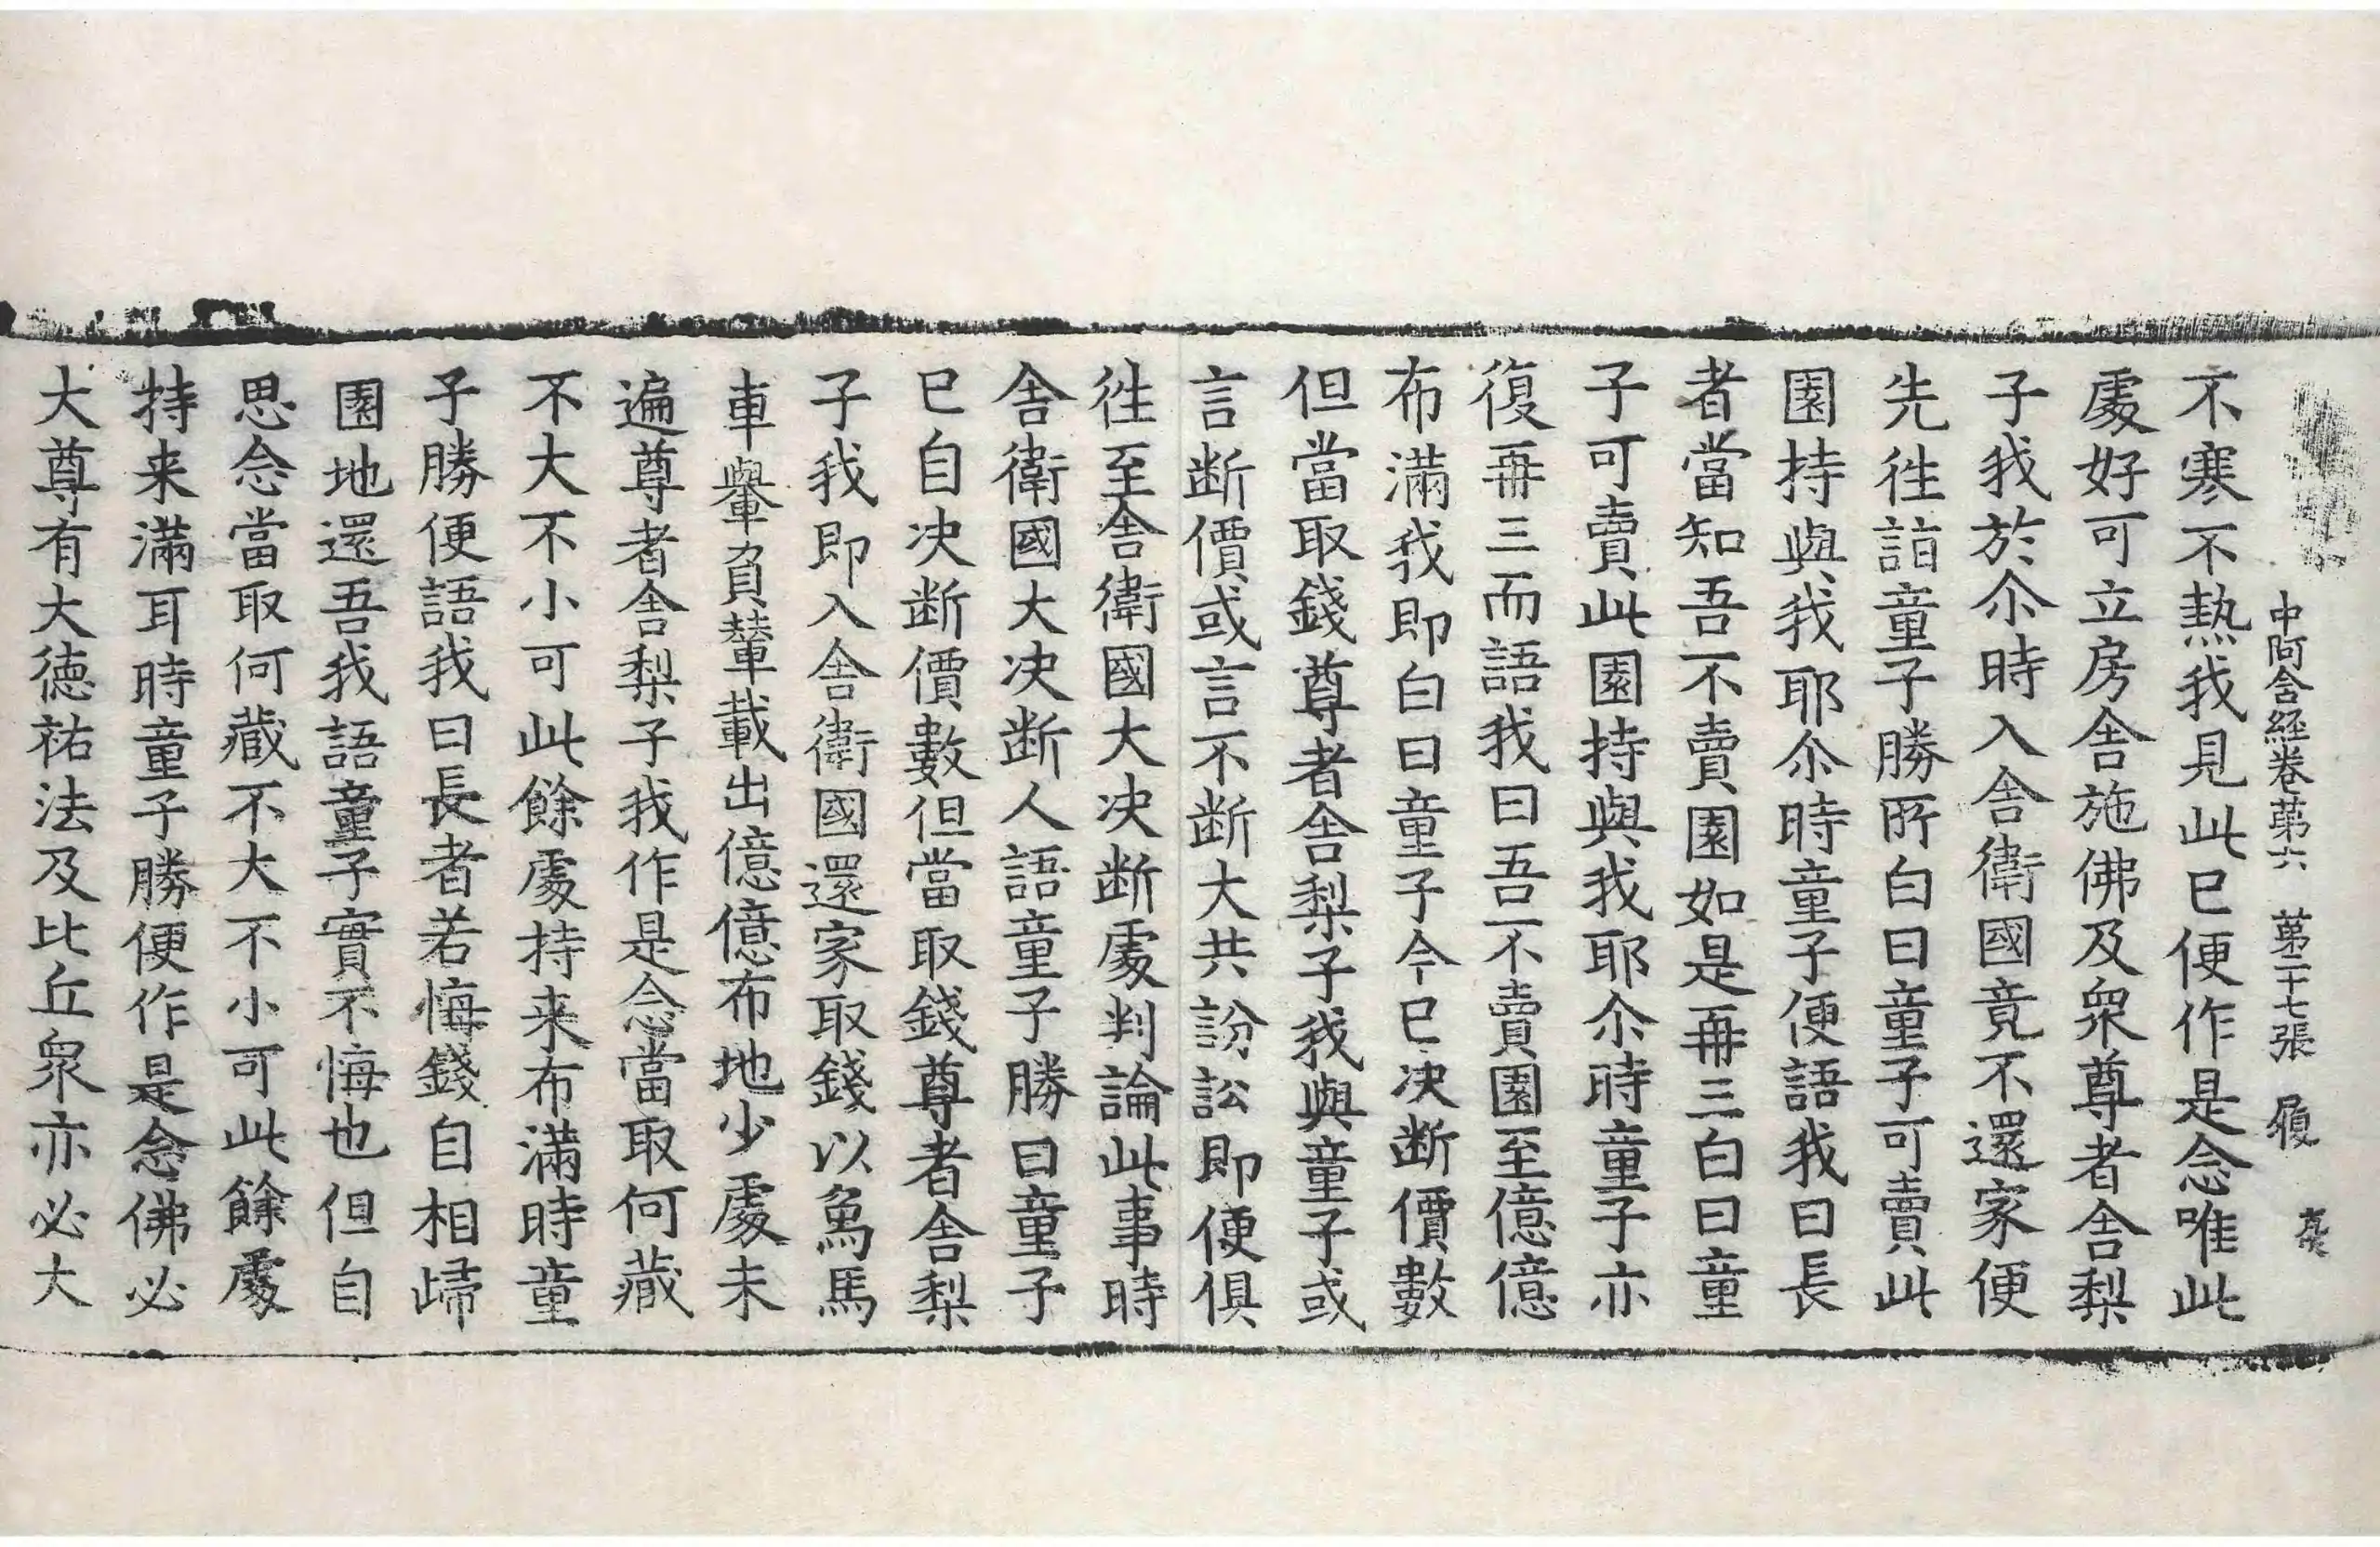 中阿含經卷第六　第二十七張　履
不寒不熱我見此已便作是念唯此
處好可立房舍施佛及衆尊者舍梨
子我於尒時入舍衛國竟不還家便
先往詣童子勝所白曰童子可賣此
園持與我耶尒時童子便語我曰長
者當知吾不賣園如是再三白曰童
子可賣此園持與我耶尒時童子亦
復再三而語我曰吾不賣園至億億
布滿我即白曰童子今已决断價數
但當取錢尊者舍梨子我與童子或
言断價或言不断大共訟訟即便俱
往至舍衛國大决断處判論此事時
舍衛國大决断人語童子勝曰童子
已自决断價數但當取錢尊者舍梨
子我即入舍衛國還家取錢以象馬
車轝負輦載出億億布地少處未
遍尊者舍梨子我作是念當取何藏
不大不小可此餘處持来布滿時童
子勝便語我曰長者若悔錢自相歸
園地還吾我語童子實不悔也但自
思念當取何藏不大不小可此餘處
持来滿耳時童子勝便作是念佛必
大尊有大徳祐法及比丘衆亦必大